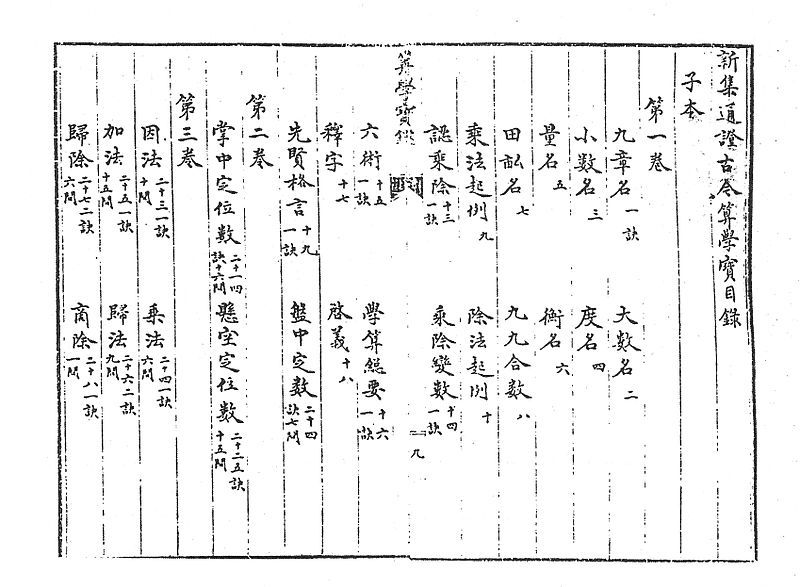 新集通證古今算學寶目錄
子本
第一卷
九章名 一訣 大數名 二
小數名 三 度名 四
量名 五 衡名 六
田畝名 七 九九合數 八
乘法起例 九 除法起例 十
認乘除 十三 一訣 乘除變數 十四 一訣
算學寶錄
九
六術 十五 一訣 學算總要 十六 一訣
釋字 十七 啓義 十八
先賢格言 十九 一訣 盤中定數 二十四 訣七問
第二卷
掌中定位數 二十一四 訣十六問 懸空定位數 二十二五訣 十五問
第三卷
因法 二十三一訣 十問 乘法 二十四一訣 六問
加法 二十五一訣 十五問 歸法 二十六二訣 九問
歸除 二十七二訣 六問 商除 二十八一訣 一問